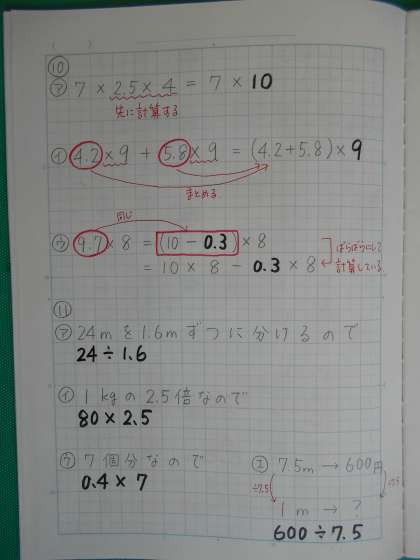 ⑩
㋐ 7 × 2.5 × 4 = 7 × 10
先に計算する
㋑ 4.2 × 9 + 5.8 × 9 = (4.2 + 5.8) × 9
まとめる
同じ
㋒ 9.7 × 8 = (10 − 0.3) × 8
= 10 × 8 − 0.3 × 8
ばらばらにして
計算している
⑪
㋐ 24mを1.6mずつに分けるので
24 ÷ 1.6
㋑ 1kgの2.5倍なので
80 × 2.5
㋒ 7個分なので
0.4 × 7
㋓ 7.5m → 600円
÷7.5
÷7.5
1m → ?
600 ÷ 7.5